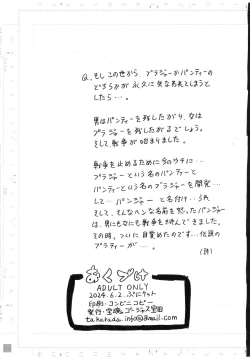 Q. もしこの世から、ブラジャーかパンティーの
どちらかが永久に失なわれてしまうと
したら…。
男はパンティーを残したがり、女は
ブラジャーを残したがるでしょう。
そして戦争が始まりました。
戦争を止めるために今のウチに…
ブラジャーという名のパンティーと
パンティーという名のブラジャーを開発…
して…パンジャーと名付け…
そして、そんなヘンな名前を怒ったパンジャー
は、男にも女にも戦争を挑んできました。
その時、ついに目覚めたのです…伝説の
ブラティーが…。
(詩)
おくづけ
ADULT ONLY
2024.6.2. ぷにケット
印刷・コンビニコピー
発行・宝魂/ゴージャス宝田
takarada.info@gmail.com